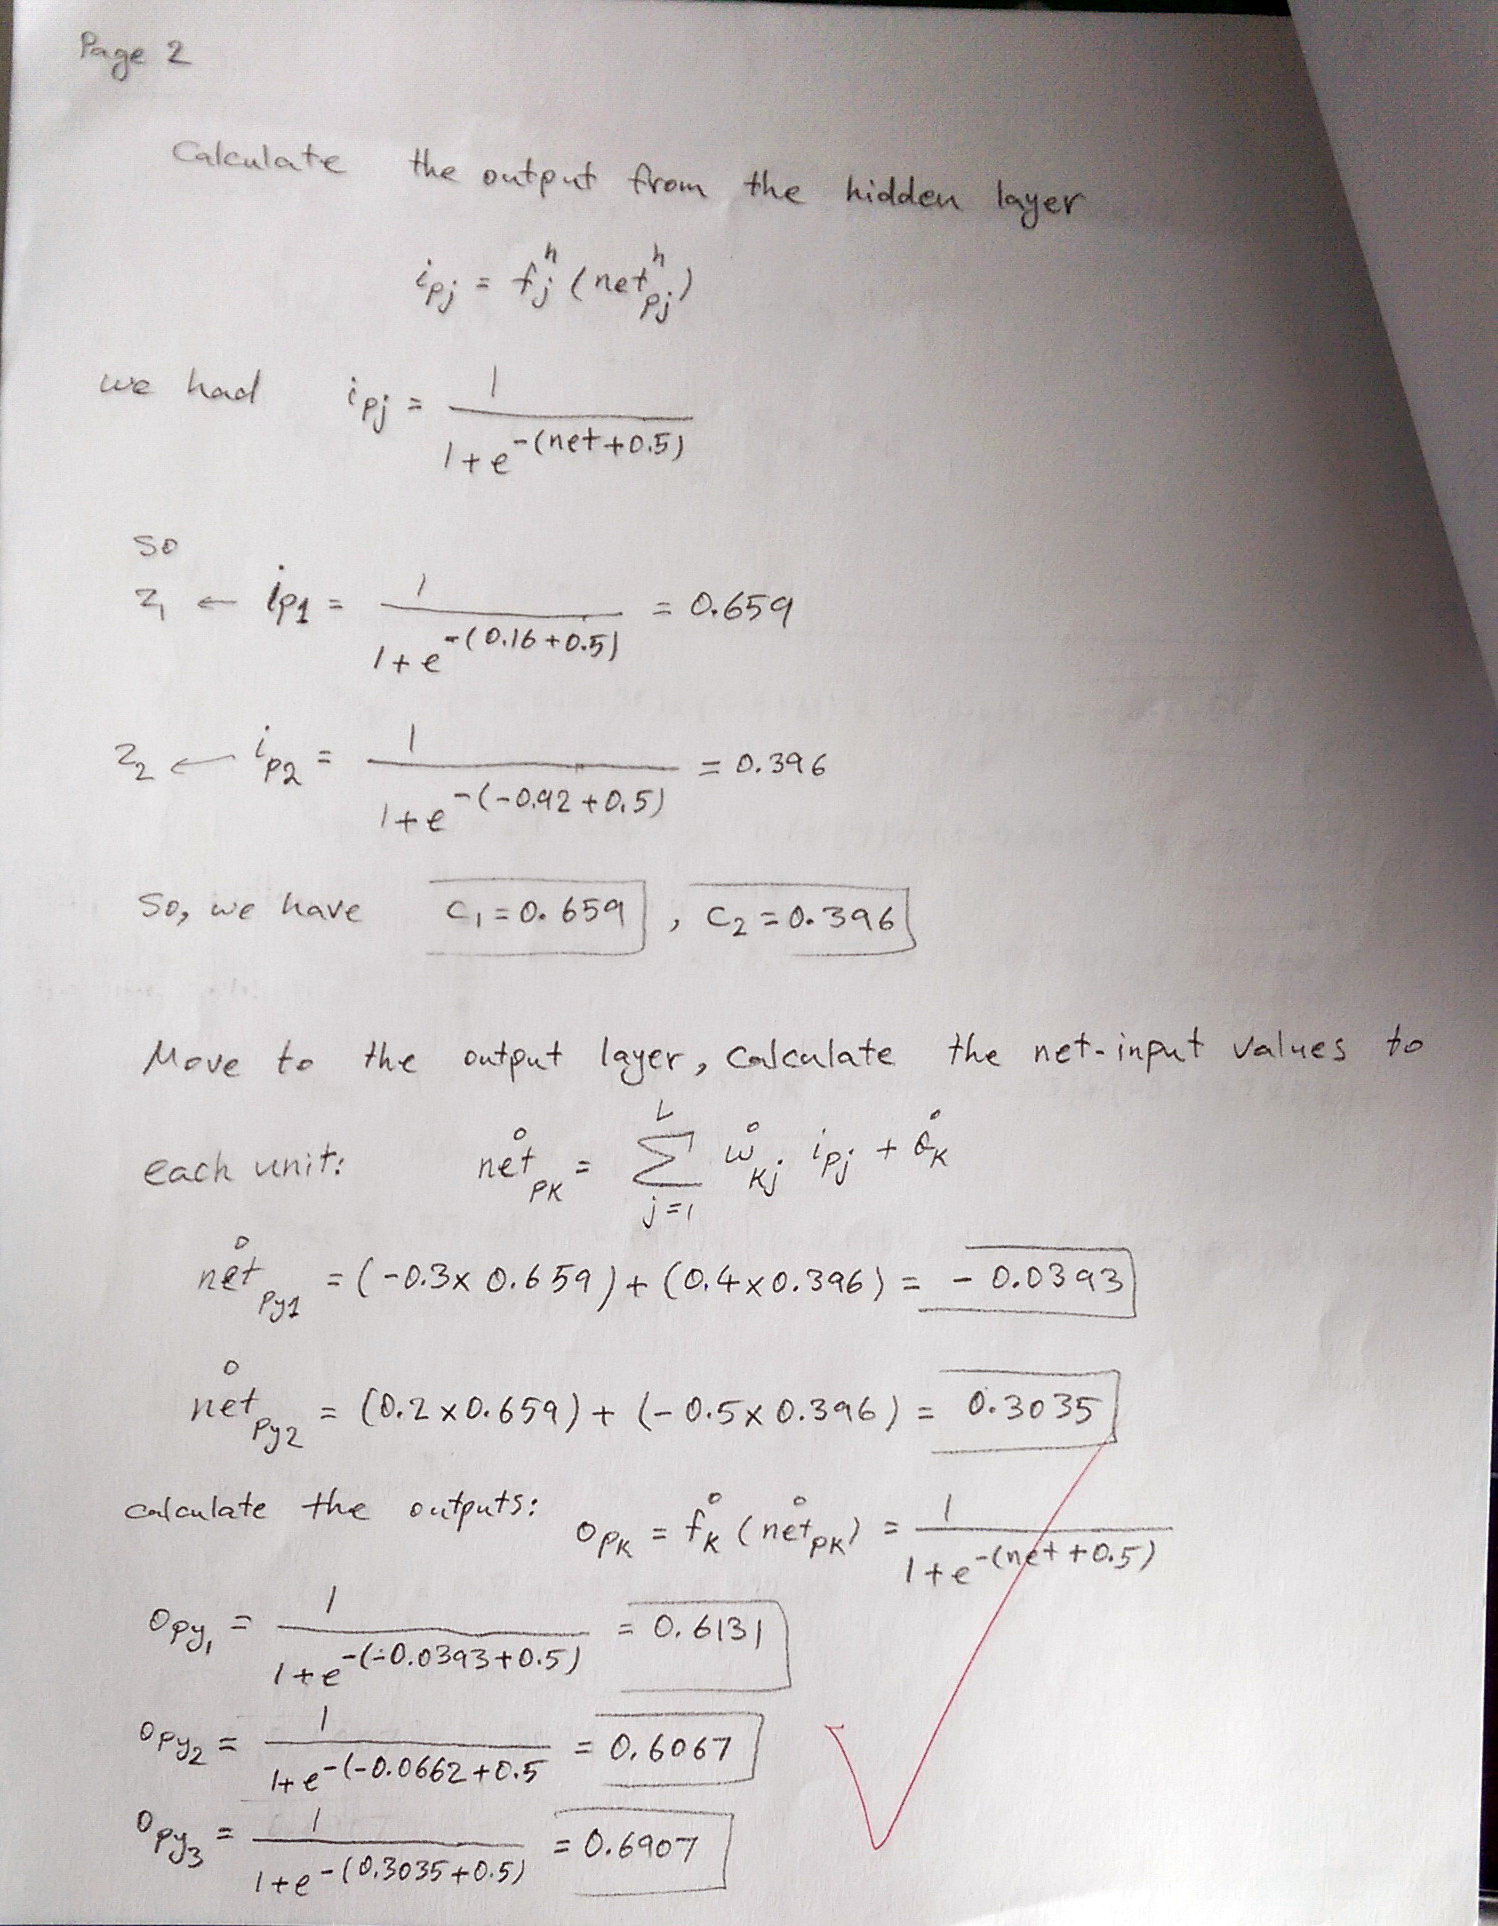 Page 2
Calculate the output from the hidden layer
i_pj = f_j^h (net_pj^h)
we had i_pj = 1 / (1+e^-(net+0.5))
so
z_1 ← i_p1 = 1 / (1+e^-(0.16+0.5)) = 0.659
z_2 ← i_p2 = 1 / (1+e^-(-0.92+0.5)) = 0.396
So, we have C_1=0.659 , C_2=0.396
Move to the output layer, calculate the net-input values to
each unit: net_pk^o = Σ_{j=1}^{L} w_kj^o i_pj + θ_k^o
net_py1^o = (-0.3x 0.659)+(0.4x0.396) = -0.0393
net_py2^o = (0.2x0.659)+(-0.5x0.396) = 0.3035
calculate the outputs: o_pk = f_k^o (net_pk^o) = 1 / (1+e^-(net+0.5))
o_py1 = 1 / (1+e^-(-0.0393+0.5)) = 0.6131
o_py2 = 1 / (1+e^-(-0.0662+0.5 = 0.6067
o_py3 = 1 / (1+e^-(0.3035+0.5)) = 0.6907